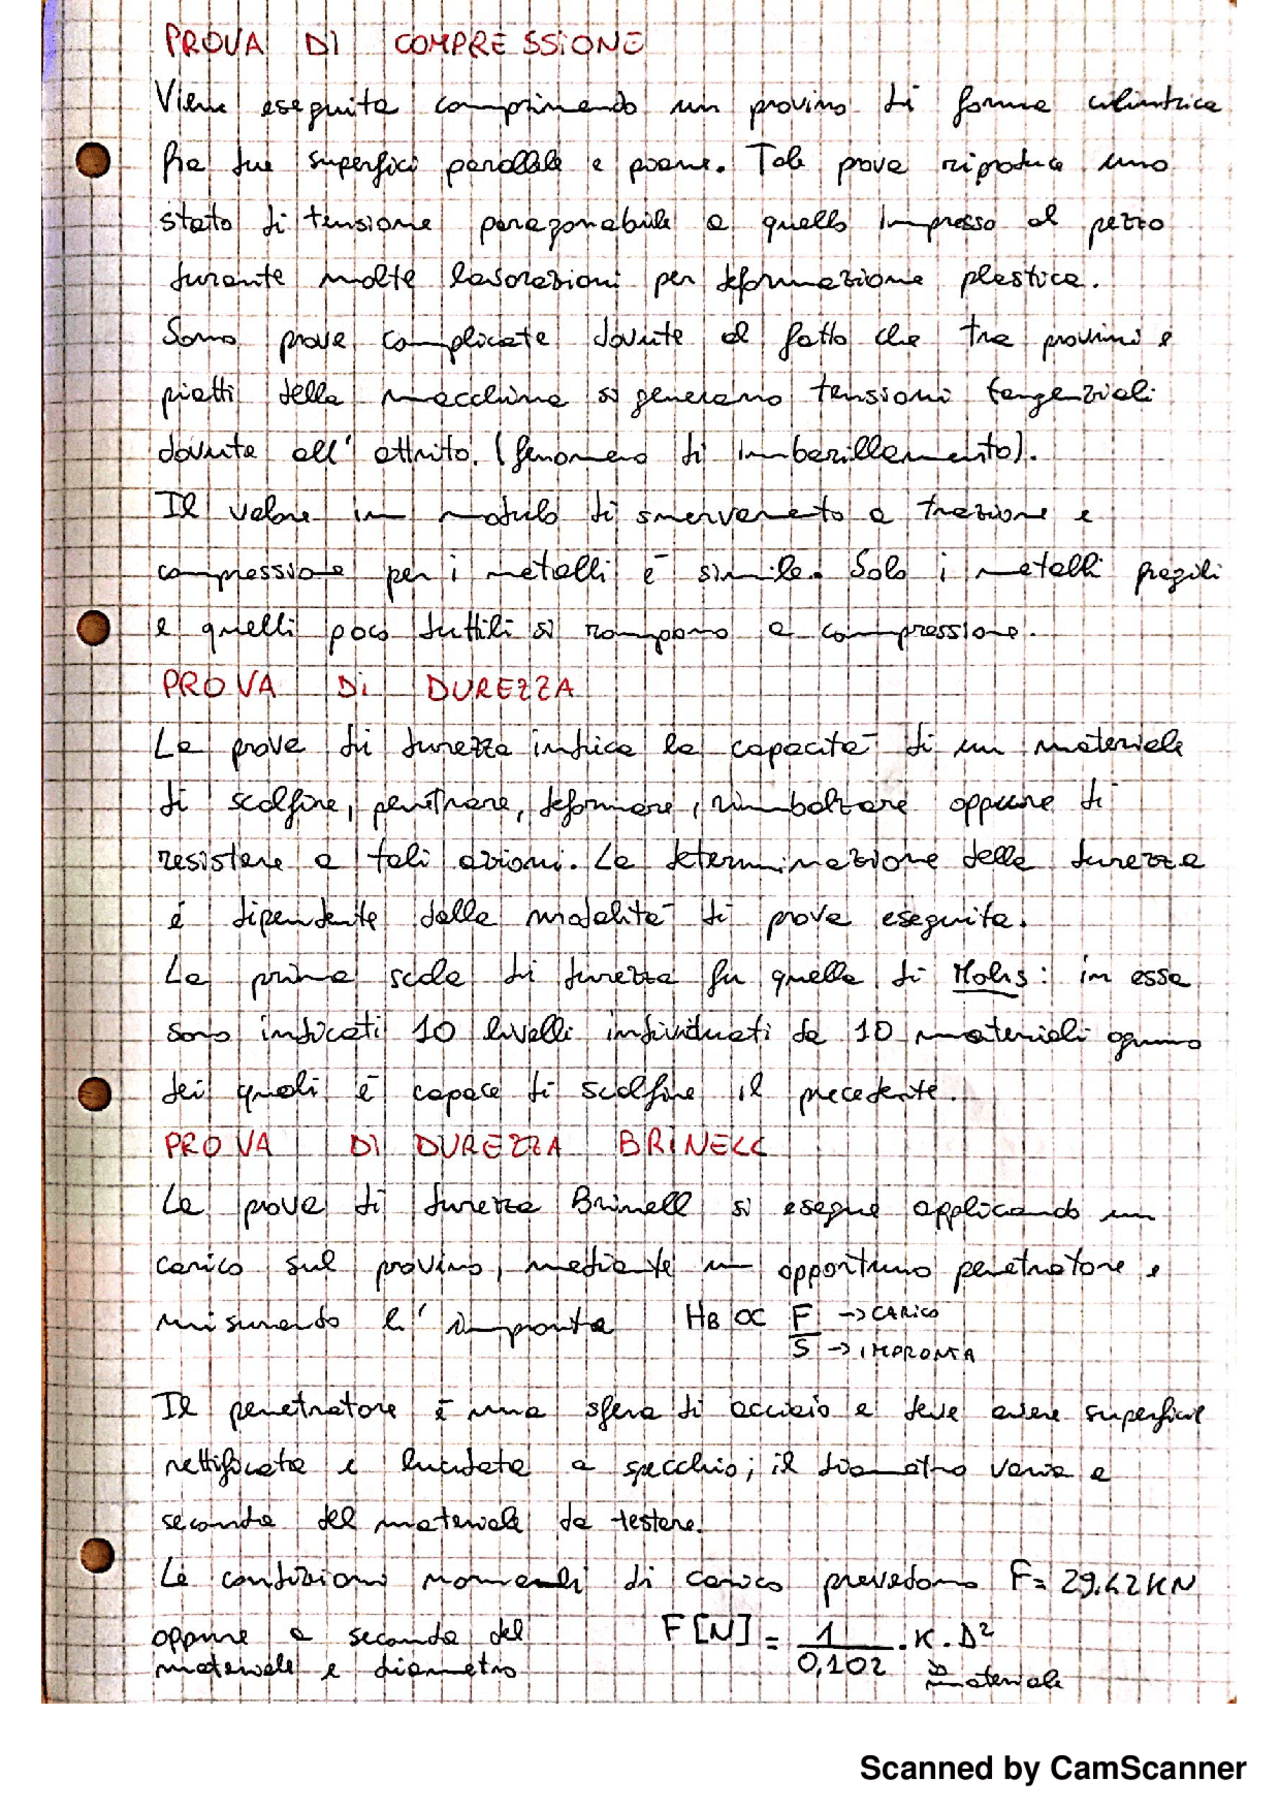 PROVA DI COMPRESSIONE
Viene eseguita comprimendo un provino di forma cilindrica
fra due superfici parallele e piane. Tale prova riproduce uno
stato di tensione paragonabile a quello impresso al pezzo
durante molte lavorazioni per deformazione plastica.
Sono prove complicate dovute al fatto che tra provini e
piatti della macchina si generano tensioni tangenziali
dovute all'attrito. (fenomeno di imbarillamento).
Il valore in modulo di snervamento a trazione e
compressione per i metalli è simile. Solo i metalli fragili
e quelli poco duttili si rompono a compressione.
PROVA Di DUREZZA
La prova di durezza indica la capacità di un materiale
di scalfire, penetrare, deformare, rimbalzare oppure di
resistere a tali azioni. La determinazione della durezza
é dipendente dalla modalità di prova eseguita.
La prima scala di durezza fu quella di Mohs: in essa
sono indicati 10 livelli individuati da 10 materiali ognuno
dei quali è capace di scalfire il precedente.
PROVA DI DUREZZA BRINELL
La prova di durezza Brinell si esegue applicando un
carico sul provino, mediante un opportuno penetratore e
misurando l'impronta HB ∝ F/S F → CARICO S → IMPRONTA
Il penetratore è una sfera di acciaio e deve avere superficie
rettificata e lucidata a specchio; il diametro varia a
seconda del materiale da testare.
Le condizioni normali di carico prevedono F= 29.42KN
oppure a seconda del F[N] = 1/0,102 · K · D²
materiale e diametro materiale
Scanned by CamScanner